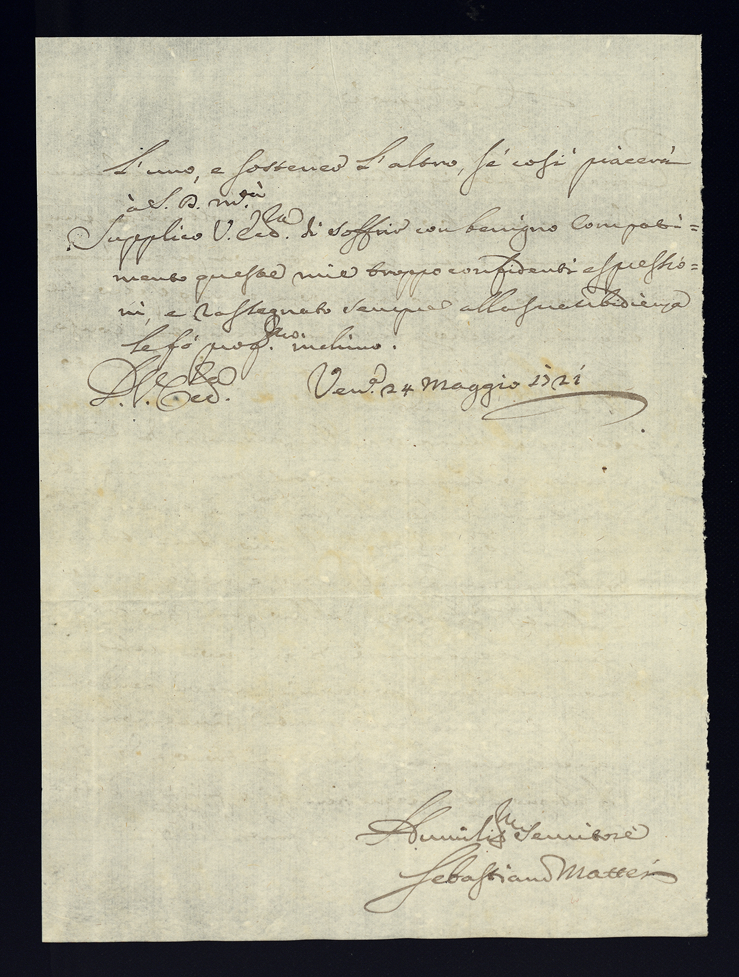 l'uno, e sosterrò l'altro, sé così piacerà
à S. D. M.tà
Supplico V. Ecc.za di soffrir con benigno Compati=
mento queste mie troppo confidenti espressio=
ni, e rassegnato sempre alla sua Ubidienza
le fò prof.mo inchino.
D. V. Ecc.za Ven.a 24 Maggio 1721
Humiliss.mo Servitore
Sebastiano Mattei